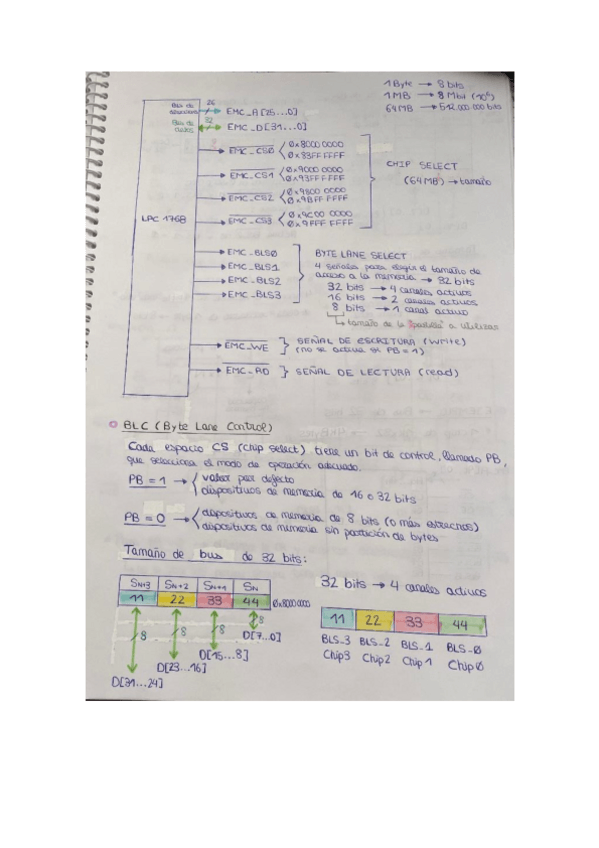 1 Byte → 8 bits
1 MB → 8 Mbit (10⁶)
64 MB → 512.000.000 bits
Bus de direcciones 26 EMC_A [25...0]
Bus de datos 32 EMC_D [31...0]
EMC_CS0 0x8000 0000
0x83FF FFFF
EMC_CS1 0x9000 0000
0x93FF FFFF
EMC_CS2 0x9800 0000
0x9BFF FFFF
EMC_CS3 0x9C00 0000
0x9FFF FFFF
CHIP SELECT
(64MB) → tamaño
LPC 1768
EMC_BLS0
EMC_BLS1
EMC_BLS2
EMC_BLS3
BYTE LANE SELECT
4 señales para elegir el tamaño de
acceso a la memoria → 32 bits
32 bits → 4 canales activos
16 bits → 2 canales activos
8 bits → 1 canal activo
tamaño de la "palabra" a utilizar
EMC_WE } SEÑAL DE ESCRITURA (write)
(no se activa si PB = 1)
EMC_RD } SEÑAL DE LECTURA (read)
BLC (Byte Lane Control)
Cada espacio CS (chip select) tiene un bit de control, llamado PB,
que selecciona el modo de operación adecuado.
PB = 1 → valor por defecto
dispositivos de memoria de 16 o 32 bits
PB = 0 → dispositivos de memoria de 8 bits (o más estrechos)
dispositivos de memoria sin partición de bytes
Tamaño de bus de 32 bits:
SN+3 SN+2 SN+1 SN
11 22 33 44 0x8000 0000
8 8 8 8
D[7...0]
D[15...8]
D[23...16]
D[31...24]
32 bits → 4 canales activos
11 22 33 44
BLS_3 BLS_2 BLS_1 BLS_0
Chip3 Chip2 Chip1 Chip0